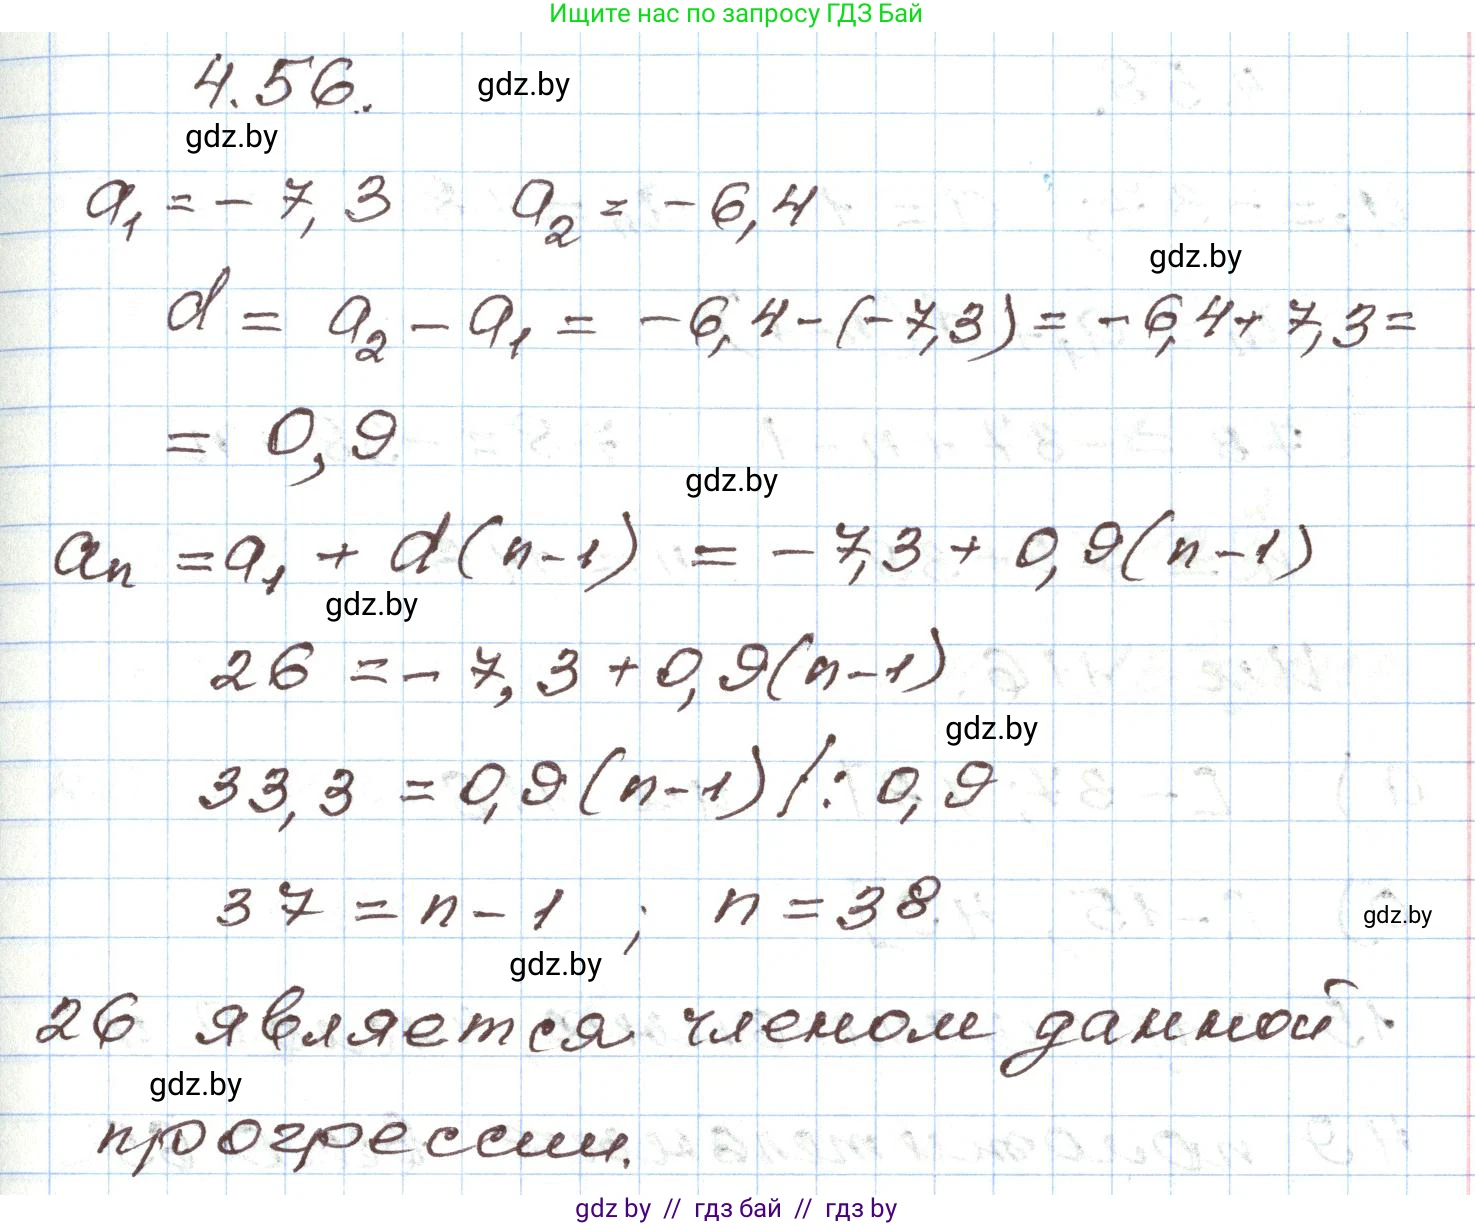 Ищите нас по запросу ГДЗ Бай
4.56.
gdz.by
gdz.by
a₁ = - 7,3 a₂ = - 6,4
gdz.by
d = a₂ - a₁ = - 6,4 - (- 7,3) = - 6,4 + 7,3 =
= 0,9
gdz.by
aₙ = a₁ + d(n-1) = - 7,3 + 0,9(n-1)
gdz.by
26 = - 7,3 + 0,9(n-1)
gdz.by
33,3 = 0,9(n-1) /: 0,9
37 = n - 1 ; n = 38
gdz.by
gdz.by
26 является членом данной
gdz.by
прогрессии.
gdz by // гдз бай // гдз by